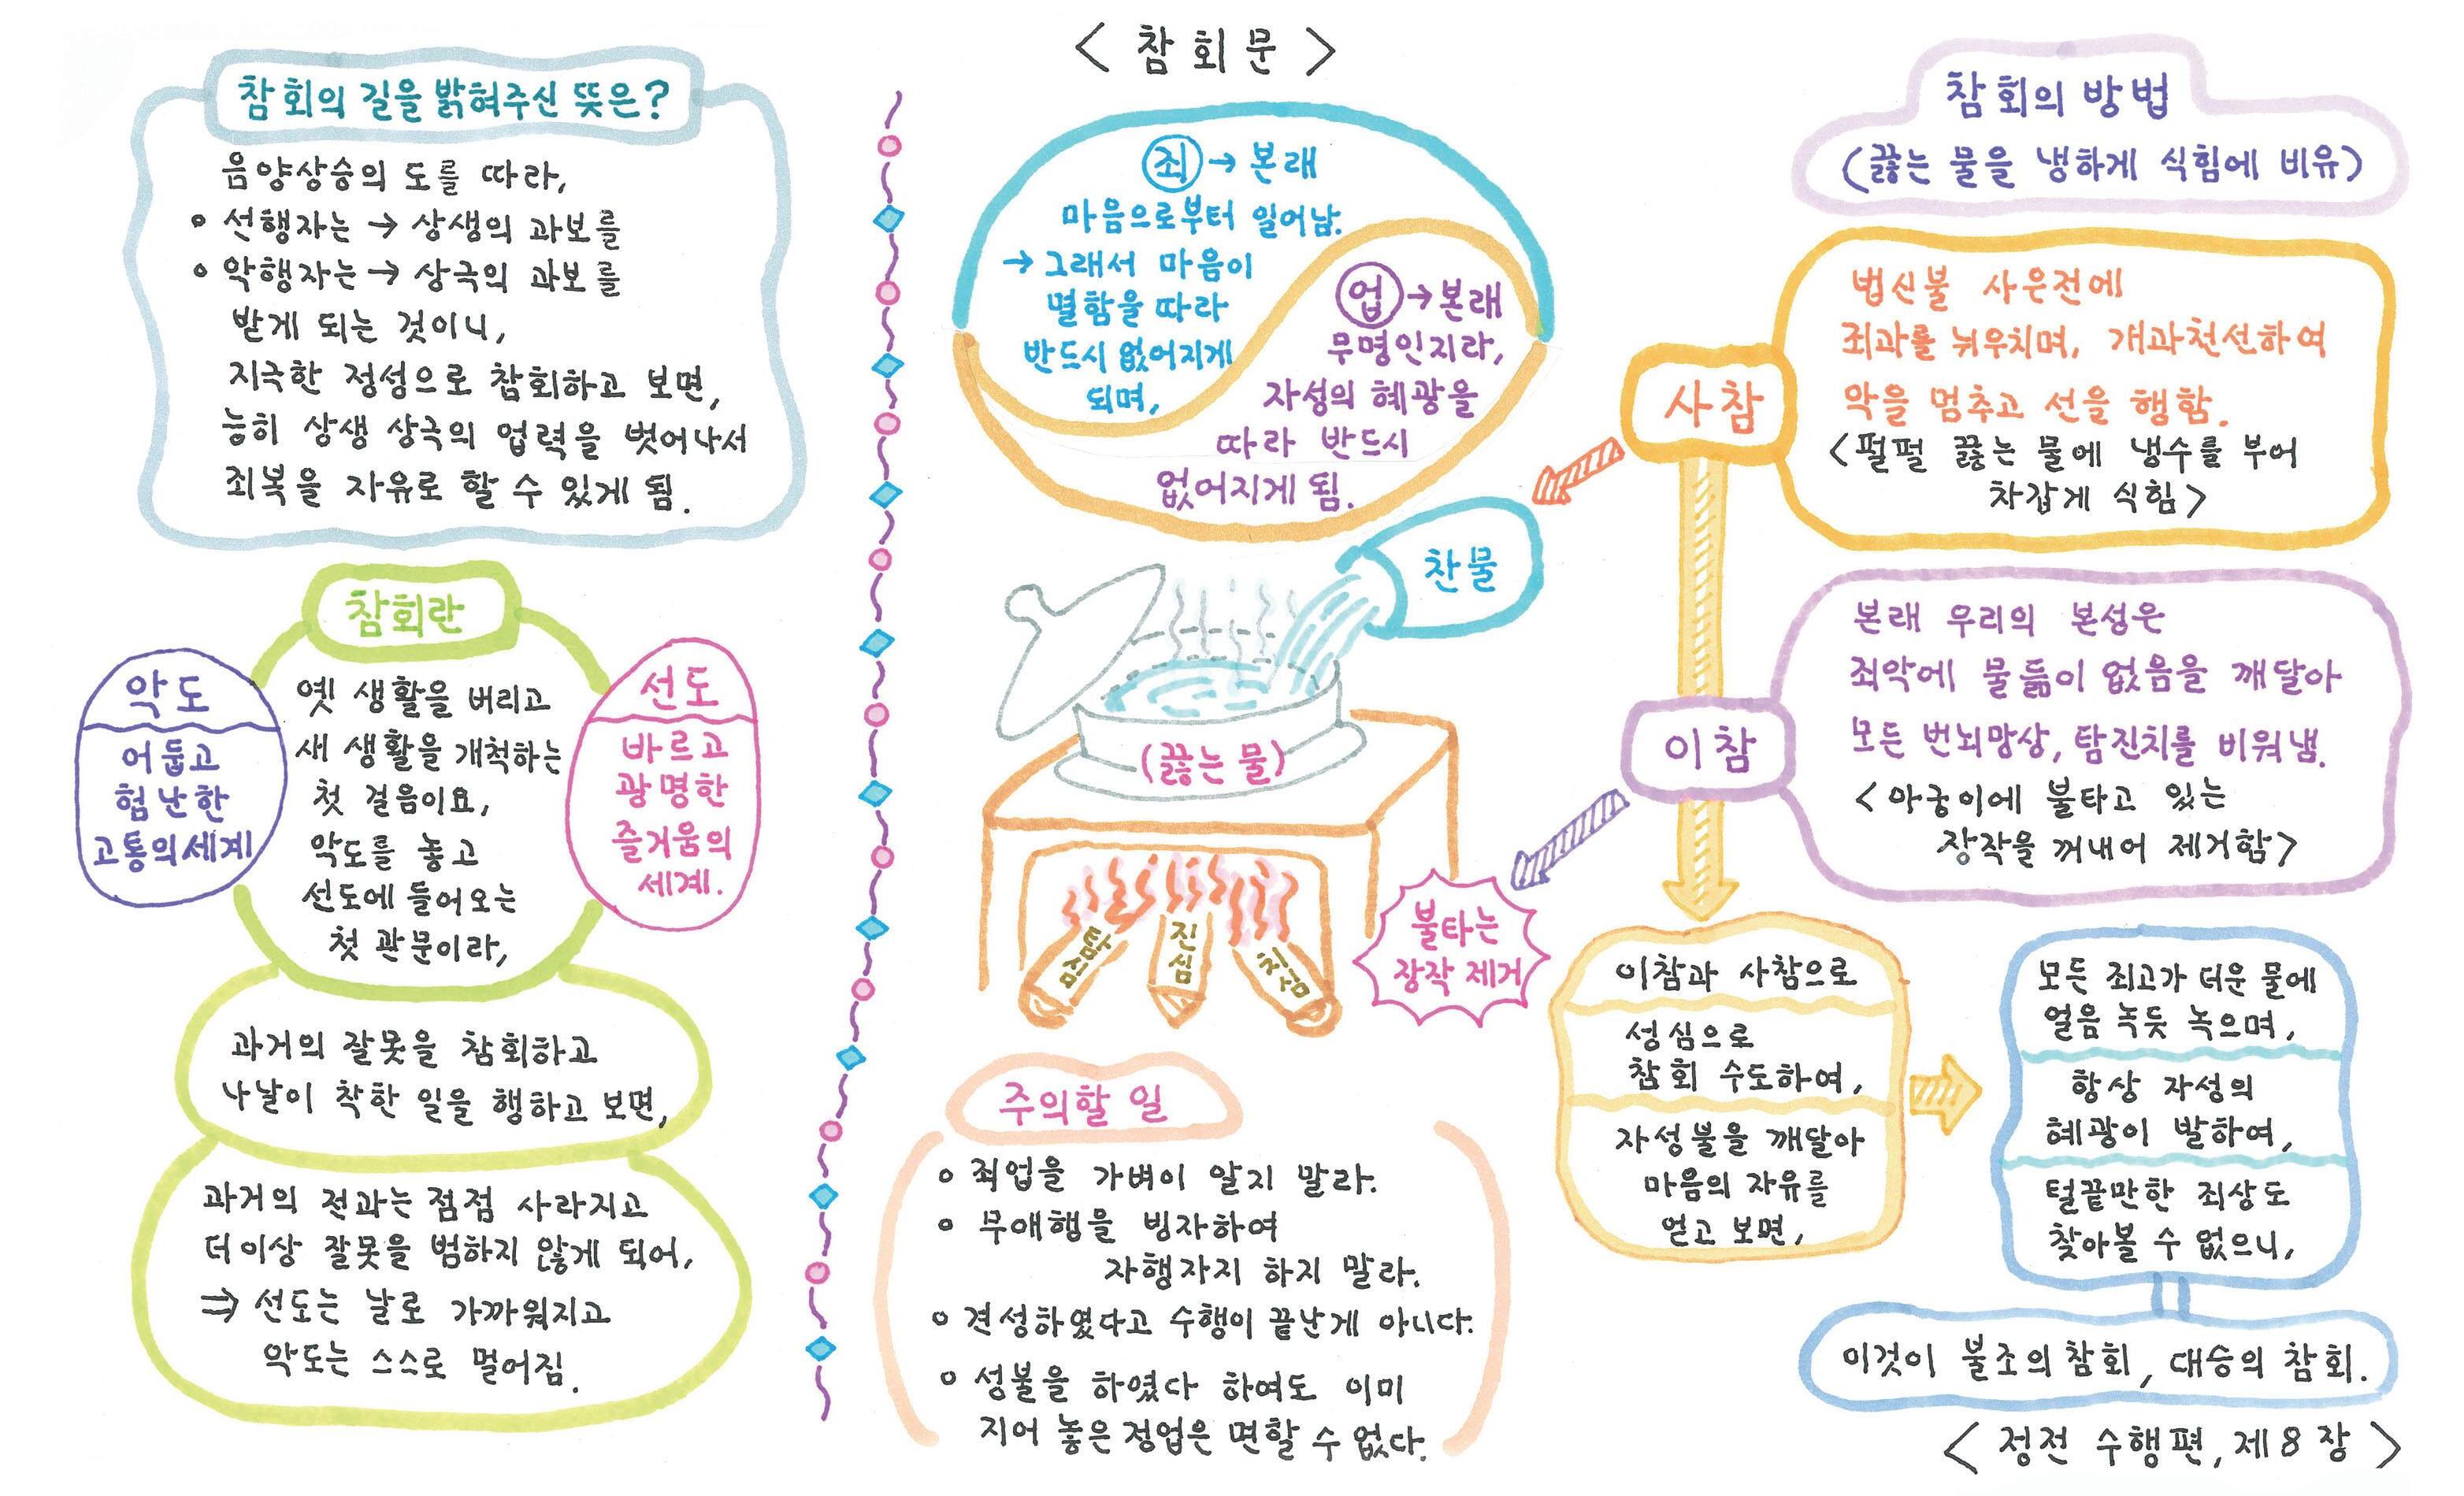 < 참회문 >
참회의 길을 밝혀주신 뜻은?
음양상승의 도를 따라,
• 선행자는 → 상생의 과보를
• 악행자는 → 상극의 과보를
받게 되는 것이니,
지극한 정성으로 참회하고 보면,
능히 상생 상극의 업력을 벗어나서
죄복을 자유로 할 수 있게 됨.
참회란
옛 생활을 버리고
새 생활을 개척하는
첫 걸음이요,
악도를 놓고
선도에 들어오는
첫 관문이라,
악도
어둡고
험난한
고통의 세계
선도
바르고
광명한
즐거움의
세계.
과거의 잘못을 참회하고
나날이 착한 일을 행하고 보면,
과거의 전과는 점점 사라지고
더 이상 잘못을 범하지 않게 되어,
⇒ 선도는 날로 가까워지고
악도는 스스로 멀어짐.
죄 → 본래
마음으로부터 일어남.
→ 그래서 마음이
멸함을 따라
반드시 없어지게
되며,
업 → 본래
무명인지라,
자성의 혜광을
따라 반드시
없어지게 됨.
찬물
(끓는 물)
탐심
진심
치심
불타는
장작 제거
주의할 일
• 죄업을 가벼이 알지 말라.
• 무애행을 빙자하여
자행자지 하지 말라.
• 견성하였다고 수행이 끝난게 아니다.
• 성불을 하였다 하여도 이미
지어 놓은 정업은 면할 수 없다.
참회의 방법
(끓는 물을 냉하게 식힘에 비유)
사참
법신불 사은전에
죄과를 뉘우치며, 개과천선하여
악을 멈추고 선을 행함.
<펄펄 끓는 물에 냉수를 부어
차갑게 식힘>
이참
본래 우리의 본성은
죄악에 물듦이 없음을 깨달아
모든 번뇌망상, 탐진치를 비워냄.
<아궁이에 불타고 있는
장작을 꺼내어 제거함>
이참과 사참으로
성심으로
참회 수도하여,
자성불을 깨달아
마음의 자유를
얻고 보면,
모든 죄고가 더운 물에
얼음 녹듯 녹으며,
항상 자성의
혜광이 발하여,
털끝만한 죄상도
찾아볼 수 없으니,
이것이 불조의 참회, 대승의 참회.
< 정전 수행편, 제8장 >